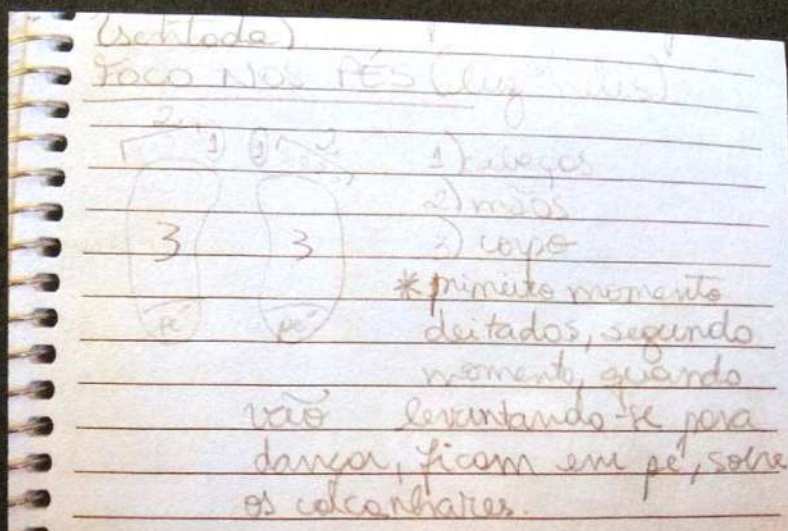 (sentada)
FOCO NOS PÉS (luz
2 1) 1) 2
1) cabeças
2) mãos
3 3 3) corpo
* primeiro momento
pé pé deitados, segundo
momento, quando
vão levantando-se para
dançar, ficam em pé, sobre
os calcanhares.